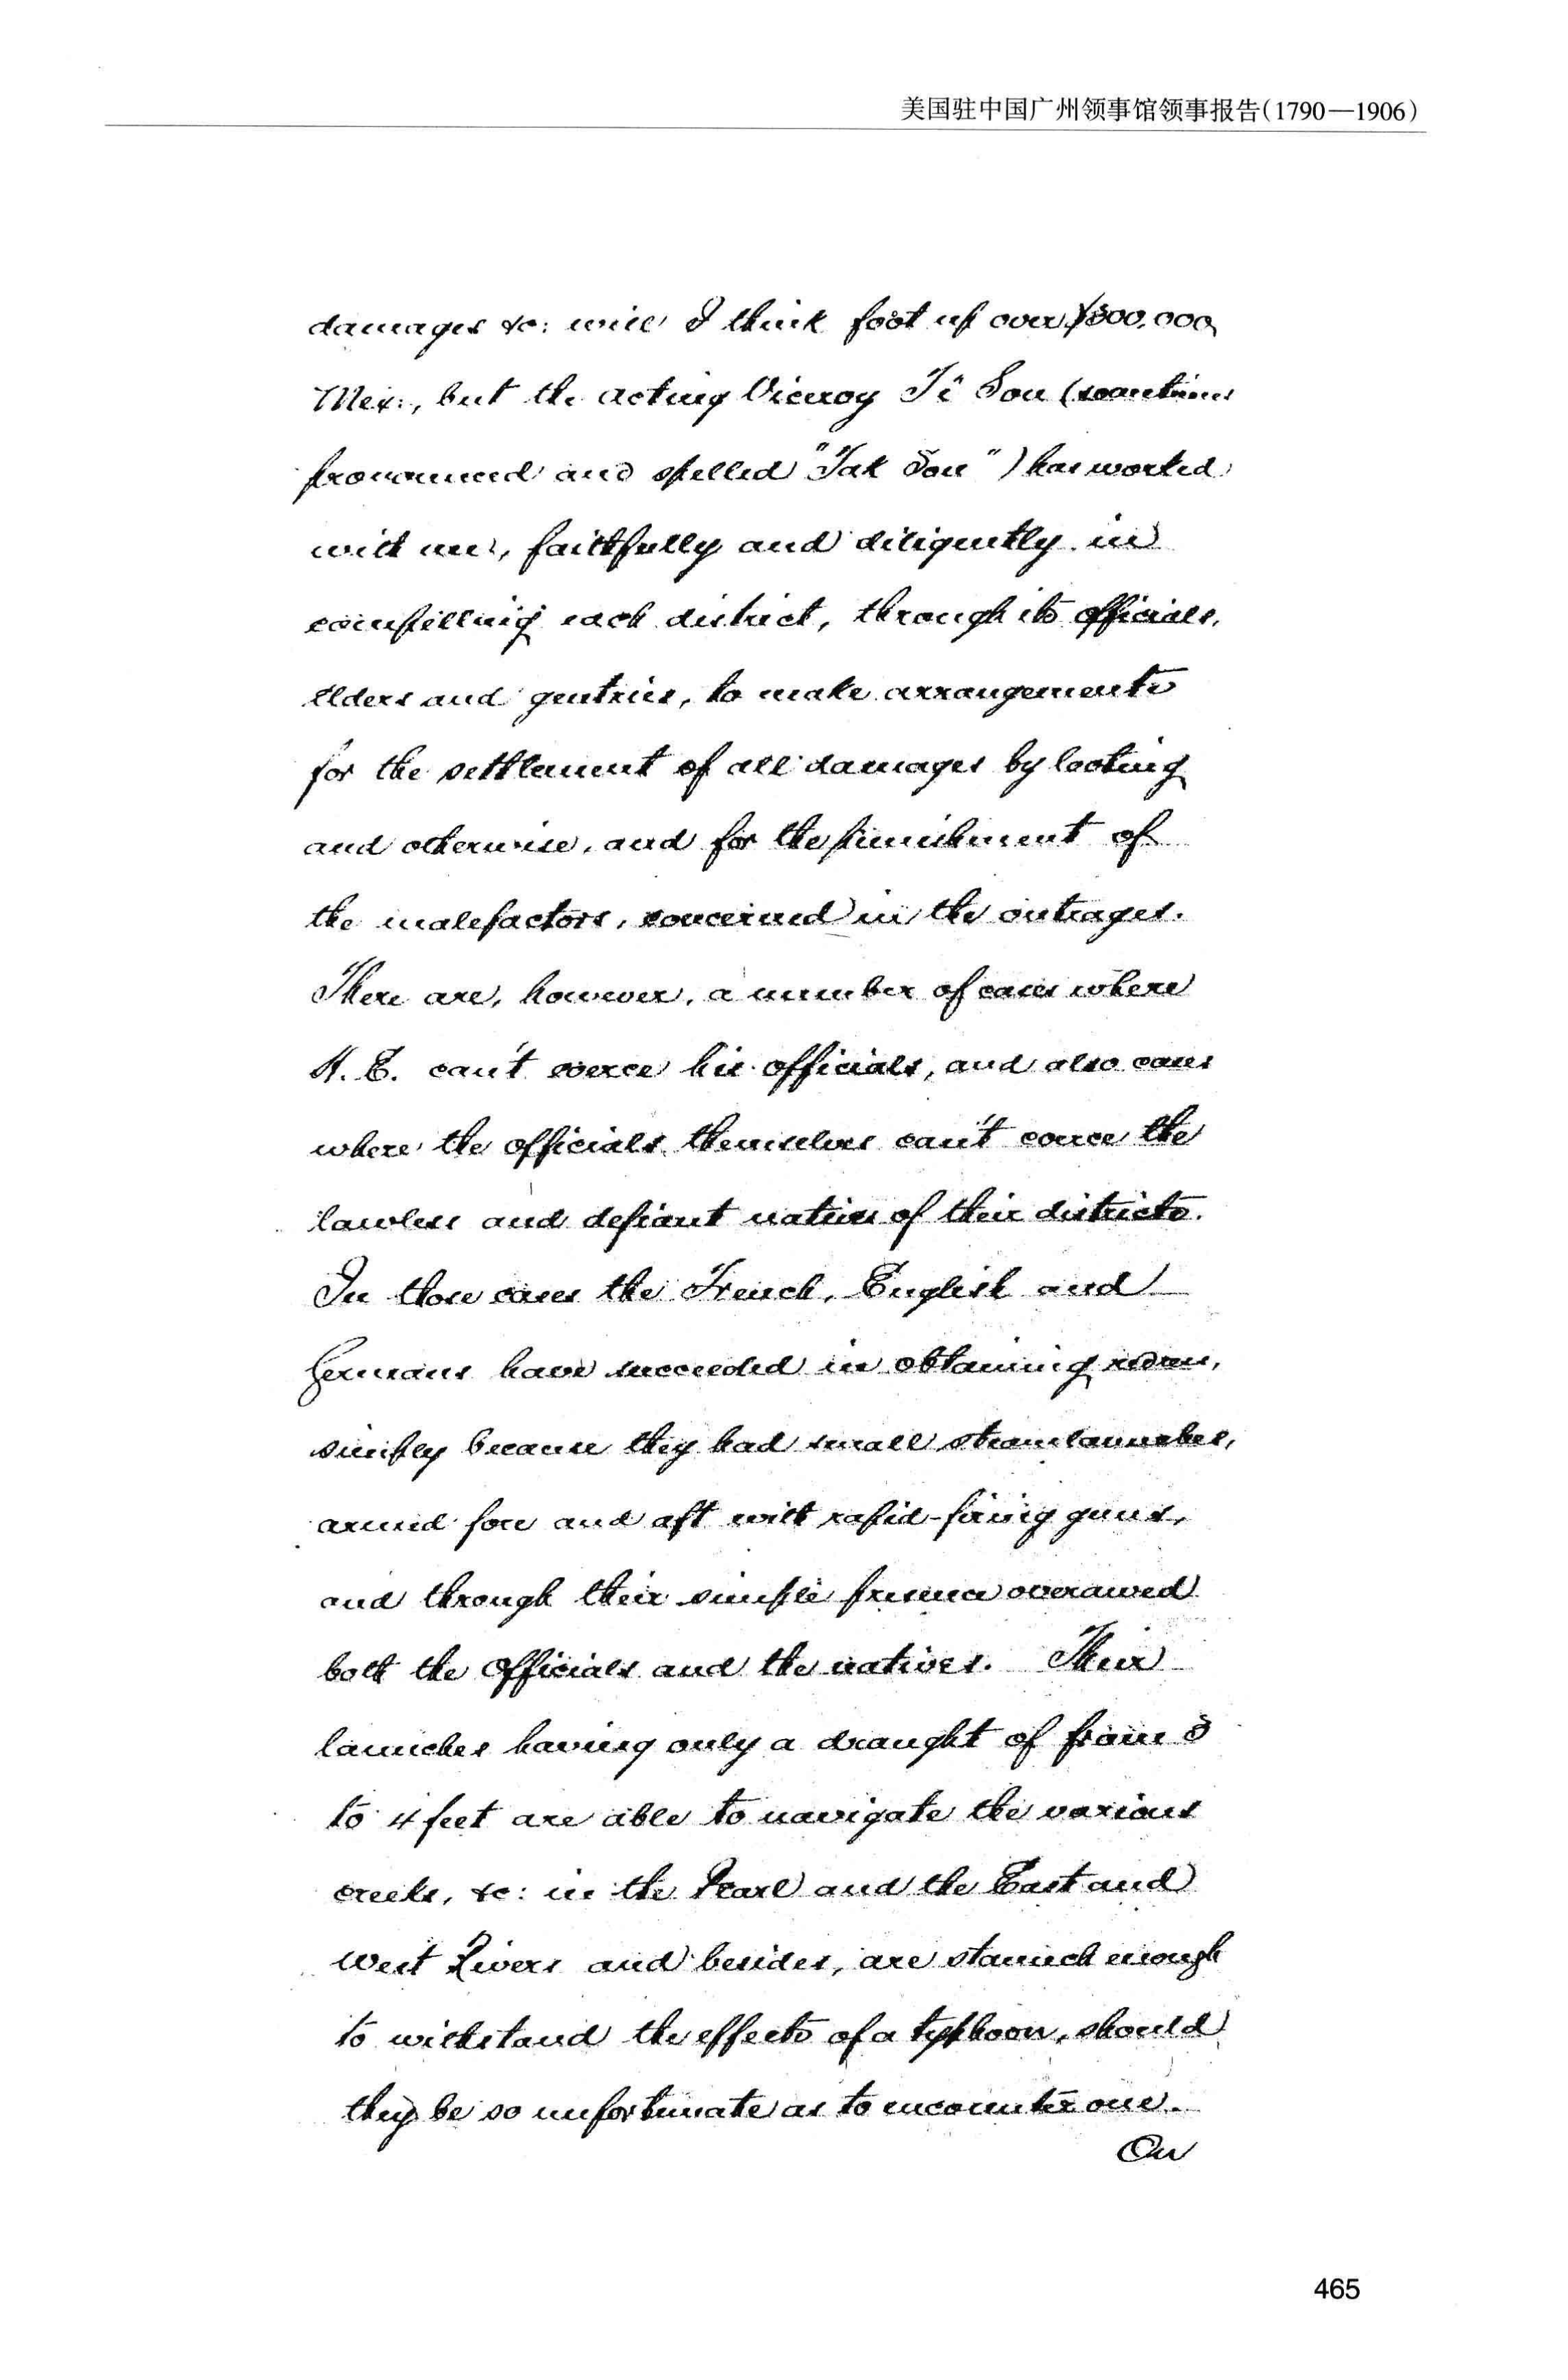 美国驻中国广州领事馆领事报告(1790—1906)
damages &c: will I think foot up over $300,000
Mex:, but the acting Viceroy Tê Sou (sometimes
pronounced and spelled "Tak Sou") has worked
with me, faithfully and diligently in
compelling each district, through its officials,
Elders and gentries, to make arrangements
for the settlement of all damages by looting
and otherwise, and for the punishment of
the malefactors, concerned in the outrages.
There are, however, a number of cases where
H. E. can't coerce his officials, and also cases
where the officials themselves can't coerce the
lawless and defiant natives of their districts.
In those cases the French, English and
Germans have succeeded in obtaining redress,
simply because they had small steamlaunches,
armed fore and aft with rapid-firing guns,
and through their simple presence overawed
both the officials and the natives. Their
launches having only a draught of from 3
to 4 feet are able to navigate the various
creeks, &c: in the Pearl and the East and
West Rivers and besides, are staunch enough
to withstand the effects of a typhoon, should
they be so unfortunate as to encounter one.
On
465